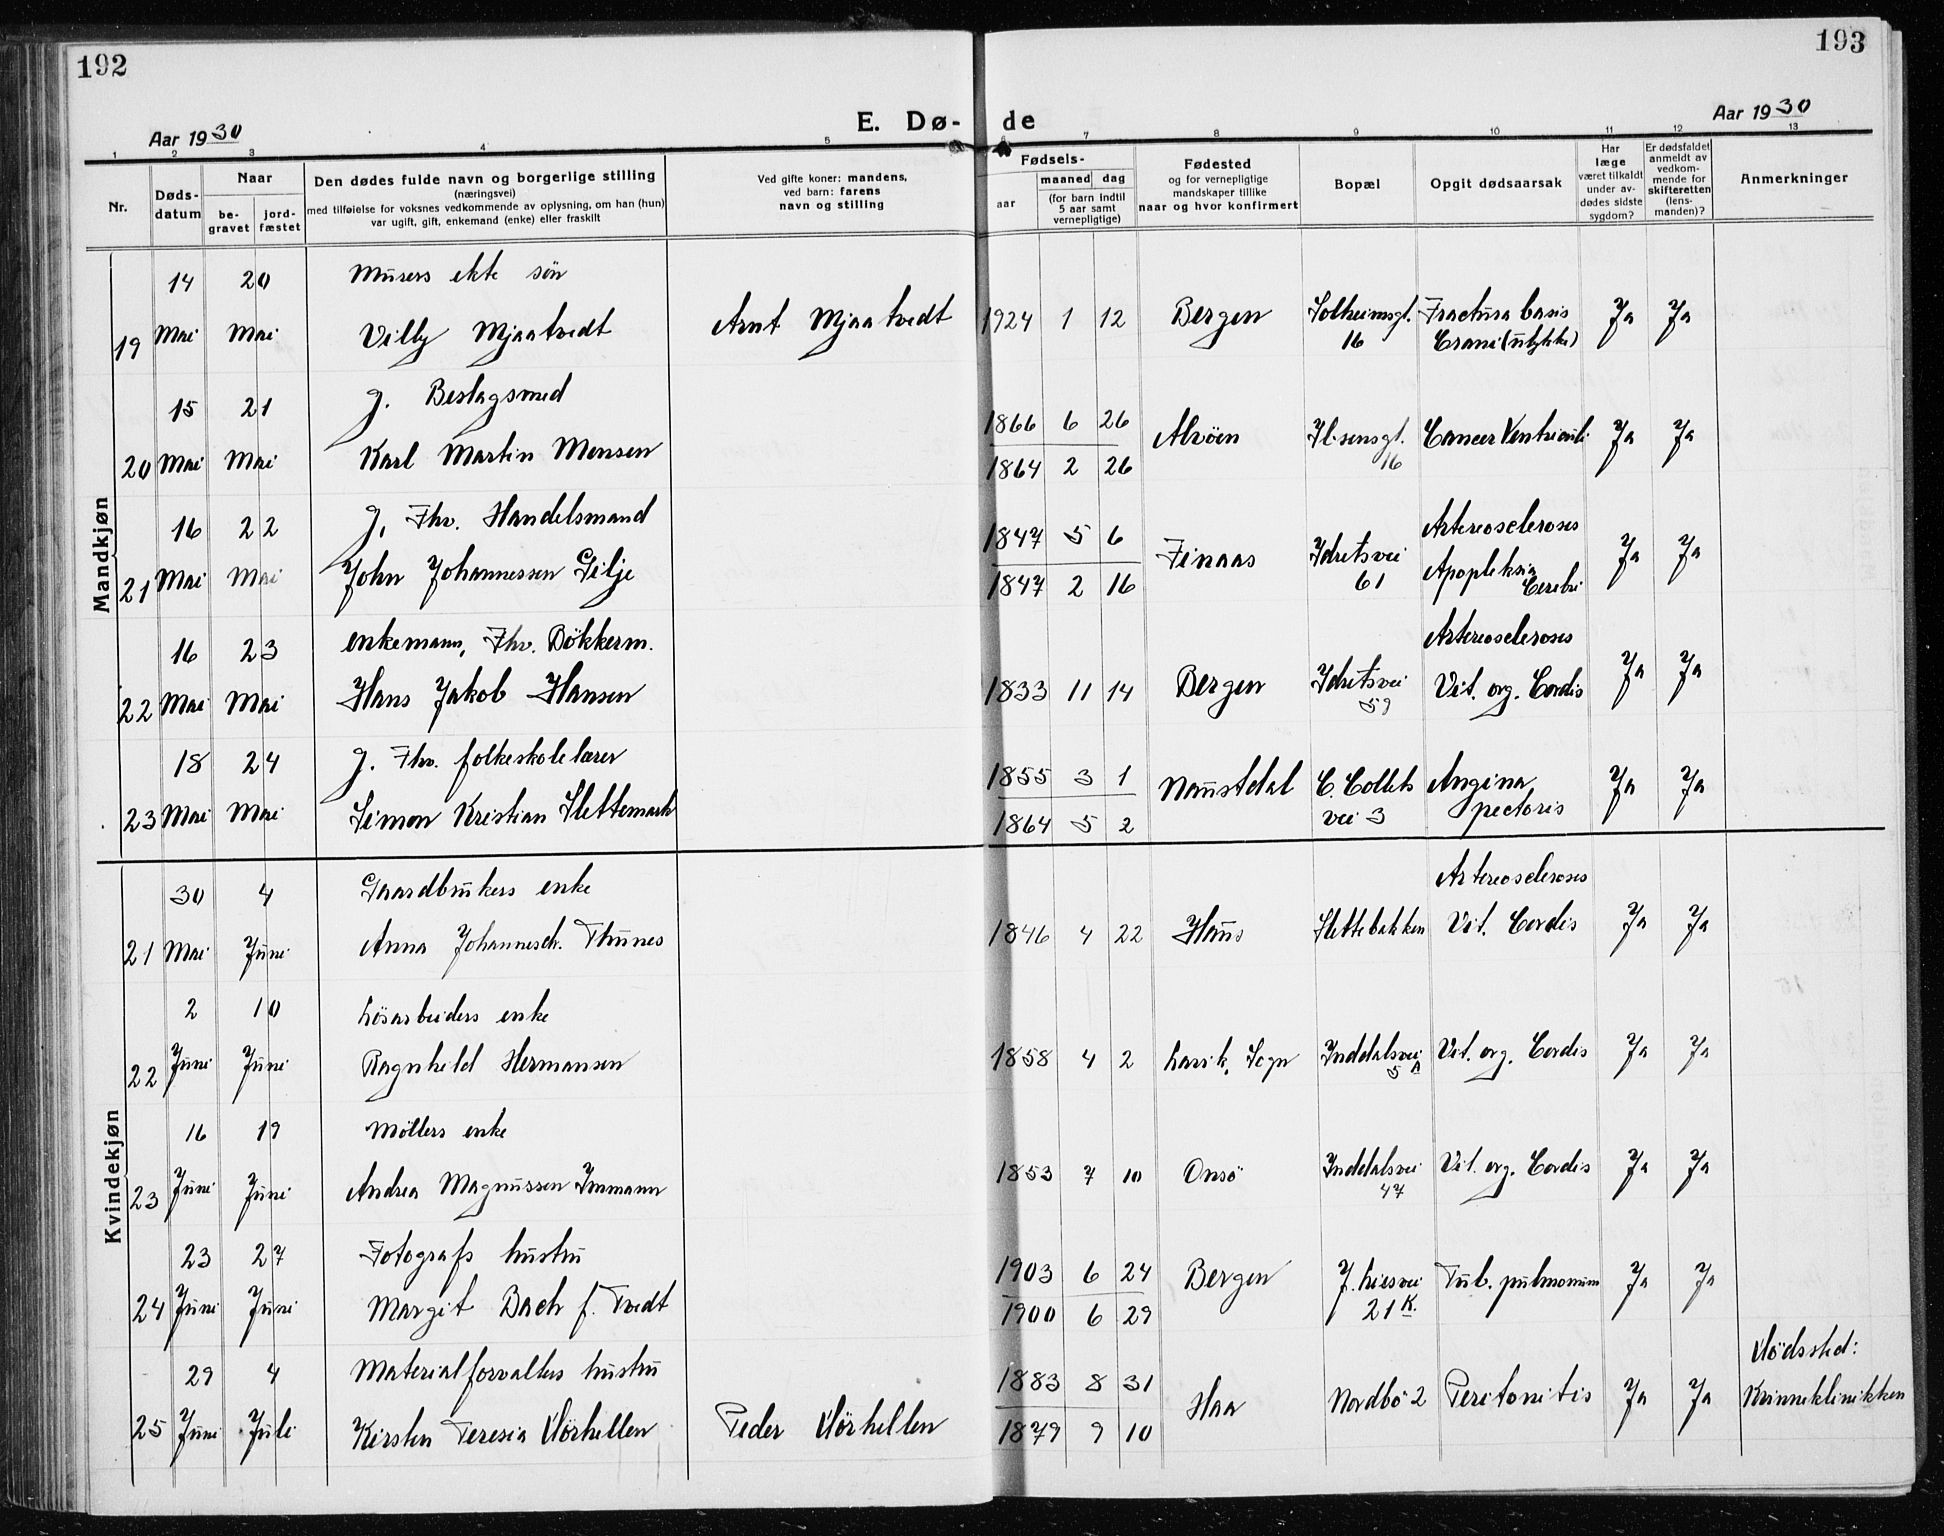 192
193
Aar 1930
E. Dø-
de
Aar 1930
1 2 3 4 5 6 7 8 9 10 11 12 13
Nr.
Døds-
datum
Naar
be-
gravet
jord-
fæstet
Den dødes fulde navn og borgerlige stilling
(næringsvei)
med tilføielse for voksnes vedkommende av oplysning, om han (hun)
var ugift, gift, enkemand (enke) eller fraskilt
Ved gifte koner: mandens,
ved barn: farens
navn og stilling
Fødsels-
aar
maaned dag
(for barn indtil
5 aar samt
vernepligtige)
Fødested
og for vernepligtige
mandskaper tillike
naar og hvor konfirmert
Bopæl
Opgit dødsaarsak
Har
læge
været tilkaldt
under av-
dødes sidste
sygdom?
Er dødsfaldet
anmeldt av
vedkom-
mende for
skifteretten
(lens-
manden)?
Anmerkninger
Mandkjøn
14 20 Murers ekte søn
19 Mai Mai Villy Mjaatvedt Arnt Mjaatvedt 1924 1 12 Bergen Solheimsgt. Fractura basis Ja Ja
16 Crani (ulykke)
15 21 g. Beslagsmed 1866 6 26
20 Mai Mai Karl Martin Monsen Alvöen Ibsensgt. Cancer Ventriculi Ja Ja
16
1864 2 26
16 22 g. Fhv. Handelsmand 1847 5 6 Arterioscleroses
21 Mai Mai John Johannessen Gilje Finaas Idretsvei Apopleksia Ja Ja
61 Cerebri
1847 2 16
16 23 enkemann, Fhv. Bökkerm. Arterioscleroses
22 Mai Mai Hans Jakob Hansen 1833 11 14 Bergen Idretsvei Vit. org. Cordis Ja Ja
59
18 24 g. Fhv. folkeskolelærer 1855 3 1
23 Mai Mai Simon Kristian Slettemark Naustdal C. Collets Angina Ja Ja
vei 3 pectoris
1864 5 2
Kvindekjøn
30 4 Gaardbrukers enke Arterioscleroses
21 Mai Juni Anna Johannesdr. Thunes 1846 4 22 Haus Slettebakken Vit. Cordis Ja Ja
2 10 Lösarbeiders enke
22 Juni Juni Ragnhild Hermansen 1858 4 2 Lavik, Sogn Inddalsvei Vit. org. Cordis Ja Ja
5 A
16 19 Møllers enke
23 Juni Juni Andrea Magnussen Immann 1853 7 10 Onsö Inddalsvei Vit. org. Cordis Ja Ja
47
23 27 Fotografs hustru 1903 6 24
24 Juni Juni Margit Bach f. Tvedt Bergen J. Liesvei Tub. pulmonum Ja Ja
21 K.
1900 6 29
29 4 Materialforvalters hustru 1883 8 31 Dödssted:
25 Juni Juli Kirsten Teresia Dörhellen Peder Dörhellen Haa Nordbö 2 Peritonitis Ja Ja Kvinneklinikken
1879 9 10